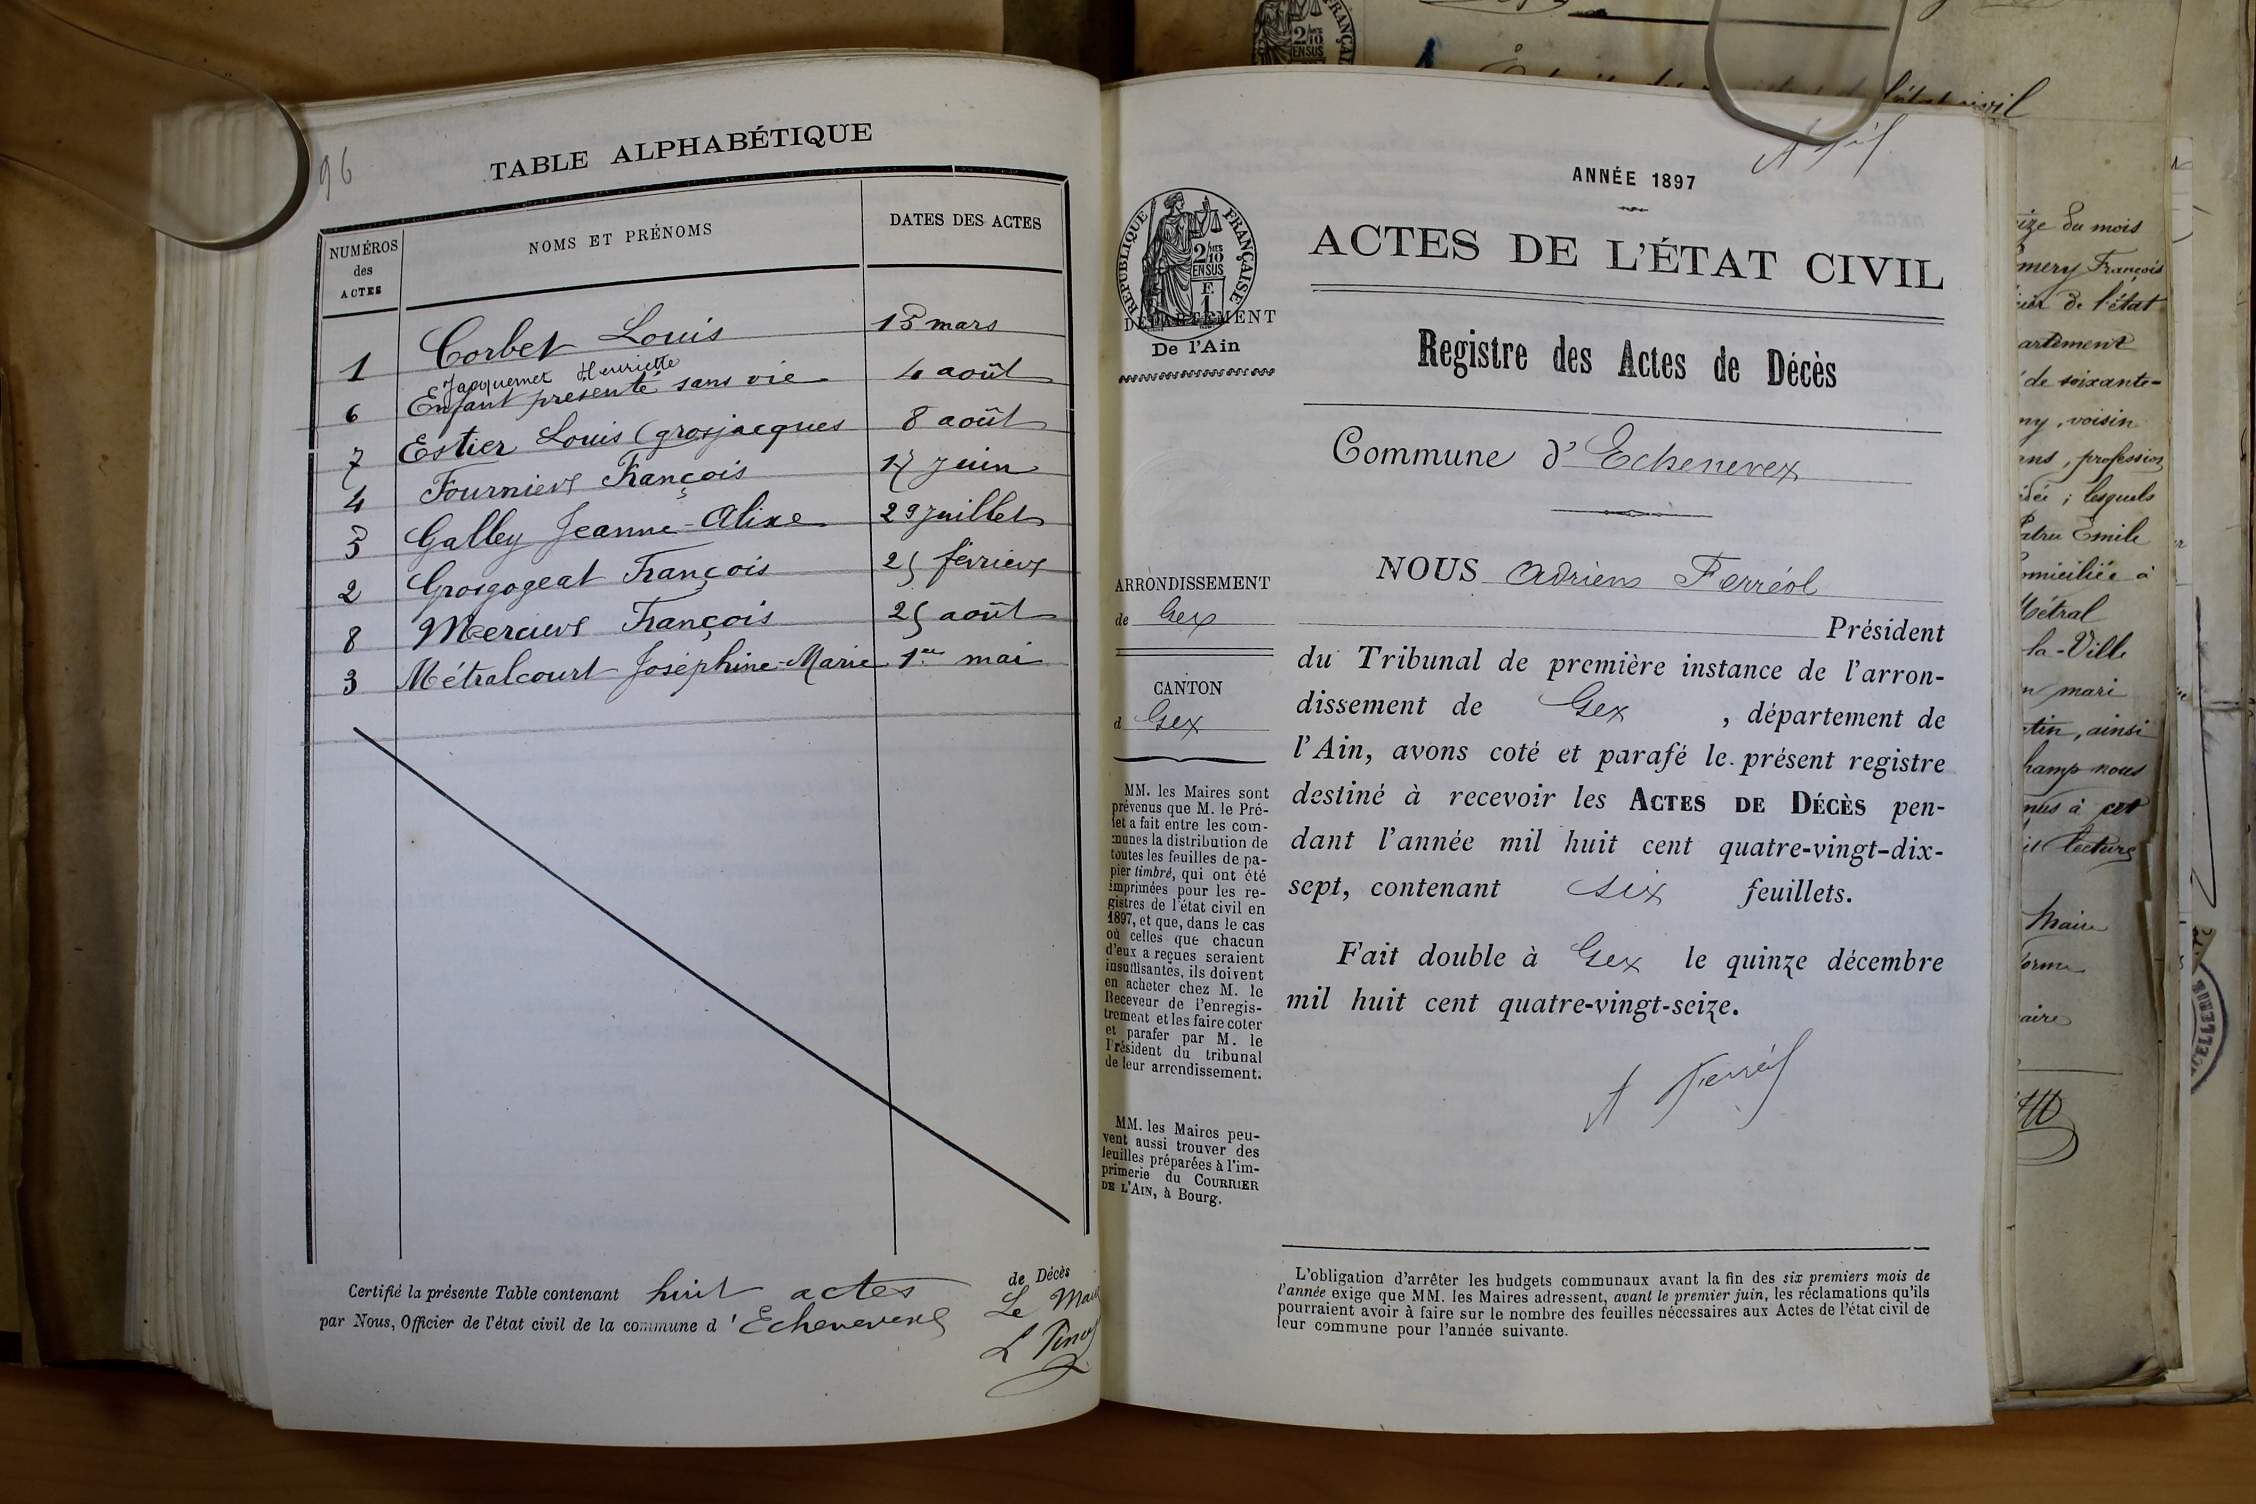 96
TABLE ALPHABÉTIQUE
NUMÉROS des ACTES
NOMS ET PRÉNOMS
DATES DES ACTES
1 Corbet Louis 15 mars
Jacquemet Henriette
6 Enfant présenté sans vie 4 août
7 Estier Louis (grosjacques 8 août
4 Fournier François 17 juin
5 Galley Jeanne-Alixe 29 juillet
2 Grosgogeat François 25 février
8 Mercier François 25 août
3 Métralcourt Joséphine-Marie 1er mai
de Décès
Certifié la présente Table contenant huit actes
par Nous, Officier de l'état civil de la commune d'Echenevex
Le Maire
ANNÉE 1897
ACTES DE L'ÉTAT CIVIL
RÉPUBLIQUE FRANÇAISE
2/10 EN SUS
F. 1
DÉPARTEMENT
De l'Ain
Registre des Actes de Décès
Commune d'Echenevex
ARRONDISSEMENT
de Gex
CANTON
d Gex
MM. les Maires sont
prévenus que M. le Pré-
fet a fait entre les com-
munes la distribution de
toutes les feuilles de pa-
pier timbré, qui ont été
imprimées pour les re-
gistres de l'état civil en
1897, et que, dans le cas
où celles que chacun
d'eux a reçues seraient
insuffisantes, ils doivent
en acheter chez M. le
Receveur de l'enregis-
trement et les faire coter
et parafer par M. le
Président du tribunal
de leur arrondissement.
MM. les Maires peu-
vent aussi trouver des
feuilles préparées à l'im-
primerie du COURRIER
DE L'AIN, à Bourg.
NOUS Adrien Ferréol
Président
du Tribunal de première instance de l'arron-
dissement de Gex, département de
l'Ain, avons coté et parafé le présent registre
destiné à recevoir les ACTES DE DÉCÈS pen-
dant l'année mil huit cent quatre-vingt-dix-
sept, contenant six feuillets.
Fait double à Gex le quinze décembre
mil huit cent quatre-vingt-seize.
A Ferréol
L'obligation d'arrêter les budgets communaux avant la fin des six premiers mois de
l'année exige que MM. les Maires adressent, avant le premier juin, les réclamations qu'ils
pourraient avoir à faire sur le nombre des feuilles nécessaires aux Actes de l'état civil de
leur commune pour l'année suivante.
l'état civil
du mois
François
de l'état
de soixante-
voisin
profession
lesquels
Emile
à
la-Ville
mari
ainsi
nous
à cet
lecture
Maire